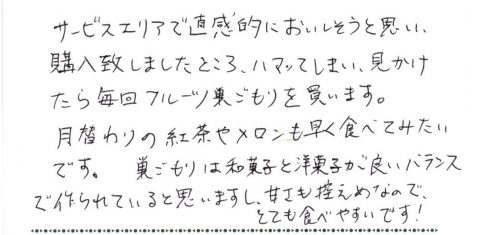 サービスエリアで直感的においしそうと思い、
購入致しましたところ、ハマッてしまい、見かけ
たら毎回フルーツ巣ごもりを買います。
月替わりの紅茶やメロンも早く食べてみたい
です。 巣ごもりは和菓子と洋菓子が良いバランス
で作られていると思いますし、甘さも控えめなので、
とても食べやすいです!